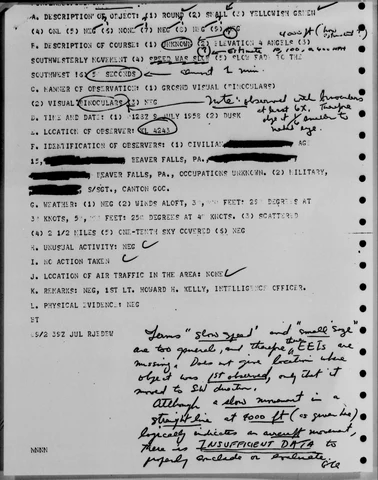 A. DESCRIPTION OF OBJECT: (1) ROUND (2) SMALL (3) YELLOWISH GREEN
(4) ONE (5) NEG (6) NONE (7) NEG (8) NEG (9) NEG
4000 ft (
B. DESCRIPTION OF COURSE: (1) UNKNOWN (2) ELEVATION 4 ANGELS (3)
SOUTHWESTERLY MOVEMENT (4) SPEED WAS SLOW (5) SLOW FADE TO THE
SOUTHWEST (6) 5 SECONDS
C. MANNER OF OBSERVATION: (1) GROUND VISUAL (BINOCULARS)
(2) VISUAL BINOCULARS (3) NEG
Note: observed with binoculars
at least 6X. Therefore
object smaller to
naked eye.
D. TIME AND DATE: (1) 0237Z 9 JULY 1958 (2) DUSK
E. LOCATION OF OBSERVER: 4241
F. IDENTIFICATION OF OBSERVERS: (1) CIVILIAN AGE
15, BEAVER FALLS, PA.,
BEAVER FALLS, PA., OCCUPATIONS UNKNOWN. (2) MILITARY,
S/SGT., CANTON GOC.
G. WEATHER: (1) NEG (2) WINDS ALOFT, FEET: 250 DEGREES AT
KNOTS, FEET: 250 DEGREES AT 40 KNOTS. (3) SCATTERED
(4) 2 1/2 MILES (5) ONE-TENTH SKY COVERED (6) NEG
H. UNUSUAL ACTIVITY: NEG
I. NO ACTION TAKEN
J. LOCATION OF AIR TRAFFIC IN THE AREA: NONE
K. REMARKS: NEG, 1ST LT. HOWARD H. KELLY, INTELLIGENCE OFFICER.
L. PHYSICAL EVIDENCE: NEG
BT
JUL RJEDEW
Terms "slow speed" and "small size"
are too general, and therefore these EEIs are
missing. Does not give location where
object was 1st observed, only that it
moved to SW direction.
Although a slow movement in a
straight line at 4000 ft (as given here)
logically indicates an aircraft movement,
there is INSUFFICIENT DATA to
properly conclude or evaluate.
NNNN